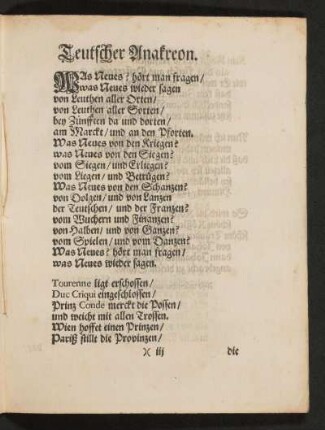 Teutscher Anakreon.
WAs Neues? hört man fragen/
was Neues wieder sagen
von Leuthen aller Orten/
von Leuthen aller Sorten/
bey Zünfften da und dorten/
am Marckt/ und an den Pforten.
Was Neues von den Kriegen?
was Neues von den Siegen?
vom Siegen/ und Erliegen?
vom Liegen/ und Betrügen?
Was Neues von den Schanzen?
von Dolgen/ und von Lanzen
der Teutschen/ und der Franzen?
vom Wundern und Finanzen?
von Halben/ und von Ganzen?
vom Spielen/ und vom Danzen?
Was Neues? hört man fragen/
was Neues wieder sagen.
Tourenne ligt erschossen/
Duc Criqui eingeschlossen/
Prinz Conde merckt die Possen/
und weicht mit allen Trossen.
Wien hoffet einen Prinzen/
Pariß stille die Provinzen/
X iij die